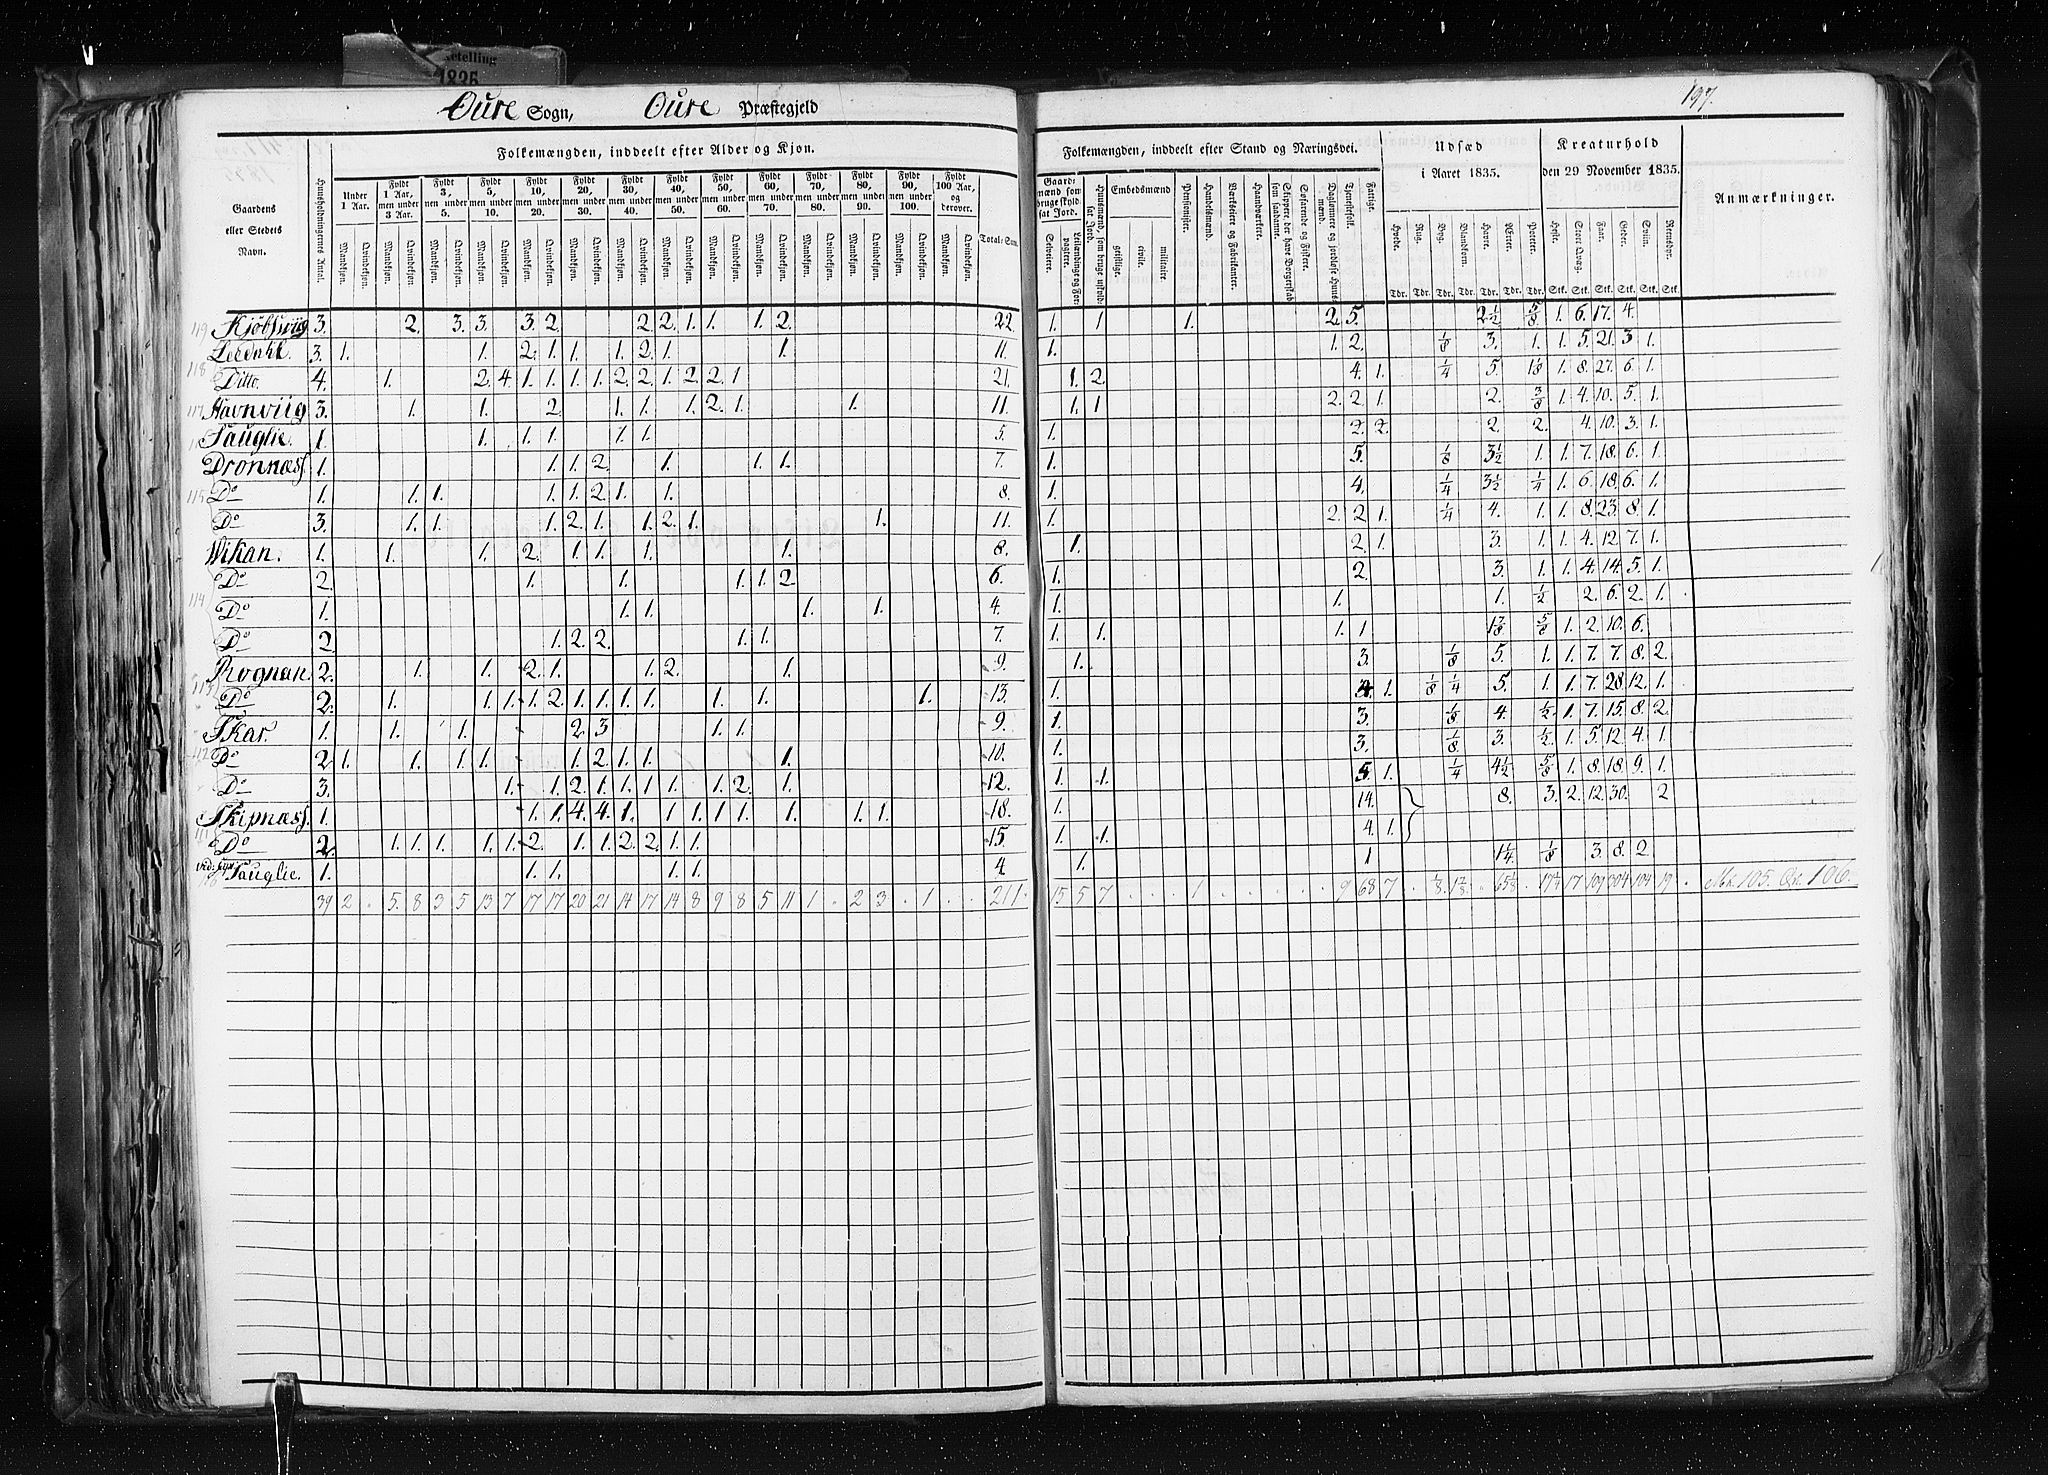 etelling
1835
Øure Sogn, Øure Præstegjeld
197.
Folkemængden, inddeelt efter Alder og Kjøn.
Folkemængden, inddeelt efter Stand og Næringsvei.
Udsæd i Aaret 1835.
Kreaturhold den 29 November 1835.
Anmærkninger.
Gaardens eller Stedets Navn.
Huusholdningernes Antal.
Under 1 Aar.
Fyldt 1 Aar, men under 3 Aar.
Fyldt 3, men under 5.
Fyldt 5, men under 10.
Fyldt 10, men under 20.
Fyldt 20, men under 30.
Fyldt 30, men under 40.
Fyldt 40, men under 50.
Fyldt 50, men under 60.
Fyldt 60, men under 70.
Fyldt 70, men under 80.
Fyldt 80, men under 90.
Fyldt 90, men under 100.
Fyldt 100 Aar, og derover.
Mandkjøn. Qvindekjøn.
Total-Sum.
Gaardmænd som bruge skyldsat Jord.
Selveiere. Leilændinge og Forpagtere.
Huusmænd, som bruge uskyldsat Jord.
Embedsmænd
geistlige. civile. militaire.
Pensionister.
Handelsmænd.
Værkseiere og Fabrikanter.
Haandværkere.
Skippere, der have Borgerskab som saadanne.
Søfarende og Fiskere.
Daglønnere og jordløse Huusmænd.
Tjenestefolk.
Fattige.
Hvede. Rug. Byg. Blandkorn. Havre. Ærter. Poteter.
Heste. Stort Qvæg. Faar. Geder. Sviin. Rensdyr.
Tdr. Tdr. Tdr. Tdr. Tdr. Tdr. Tdr. Stk. Stk. Stk. Stk. Stk. Stk.
119 Kjøbsviig 3. 2. 3. 3. 3. 2. 2. 2. 1. 1. 1. 2. 22. 1. 1 1. 2. 5. 2½ 5/8 1. 6. 17. 4.
3. 1. 1. 2. 1. 1. 1. 2. 1. 1. 11. 1. 1. 2. 1/8 3. 1. 1. 5. 21. 3 1.
118 Ditto. 4. 1. 2. 4. 1. 1. 1. 1. 2. 2. 1. 2. 2. 1 21. 1. 2. 4. 1. 1/4 5. 1. 8. 27. 6. 1.
117 Havnviig 3. 1. 1. 2. 1. 1. 1. 2. 1. 1. 11. 1. 1 2. 2. 1. 2. 3/8 1. 4. 10. 5. 1.
Tauglie. 1. 1. 1. 1. 1. 1. 5. 1. 2. 2. 2. 2. 4. 10. 3. 1.
Dronnæss. 1. 1. 1. 2. 1. 1. 1. 7. 1. 5. 1/8 3½ 1. 1. 7. 18. 6. 1.
115 Do 1. 1. 1. 1. 1. 2. 1. 1. 8. 1. 4. 1/4 3½ 1/4 1. 6. 18. 6. 1.
Do 3. 1. 1. 1. 2. 1. 1. 2. 1. 1. 11. 1. 2. 2. 1. 1/4 4. 1. 1. 8. 23. 8. 1.
Wikan. 1. 1. 1. 2. 1. 1. 1. 1. 8. 1. 2. 1. 3. 1. 1. 4. 12. 7. 1.
Do 2. 1. 1. 1. 1. 2. 6. 1. 2. 3. 1. 1. 4. 14. 5. 1.
114 Do 1. 1. 1. 1. 1. 4. 1. 1. 1. ½ 2. 6. 2. 1.
Do 2. 1. 2. 2. 1. 1. 7. 1. 1. 1. 1 1 7/8 5/8 1. 2. 10. 6.
Rognan. 2. 1. 1. 2. 1. 1. 2. 1. 9. 1. 3. 1/8 5. 1. 1. 7. 7. 8. 2.
113 Do 2. 1. 1. 1. 1. 2. 1. 1. 1. 1. 1. 1. 1. 13. 1. 4. 1. 1/8 1/4 5. 1. 1. 7. 28. 12. 1.
Skar. 1. 1. 1. 2. 3 1. 1. 9. 1. 3. 1/8 4. ½ 1. 7. 15. 8. 2.
112 Do 2. 1. 1. 1. 1. 1. 2. 1. 1. 1. 10. 1. 3. 1/8. 3. ½ 1. 5. 12. 4. 1.
Do 3. 1. 1. 2. 1. 1. 1 1. 1. 2. 1. 12. 1. 1. 5. 1. 1/4 4½ 5/8 1. 8. 18. 9. 1.
Skipnæss. 1. 1. 1. 4. 4. 1. 1. 1. 1. 1. 1. 1. 1. 18. 1. 14. 8. 3. 2. 12. 30. 2
111 Do 2. 1. 1. 1. 1. 1. 2. 1. 1. 2. 2. 1. 1. 15. 1. 1. 4. 1.
Tauglie. 1. 1. 1. 1. 1. 4 1. 1 1¼ 1/8 3. 8. 2.
39 2 . 5. 8 3 5 13 7 17 17 20 21 14 17 14 8 9 8 5 11 1 . 2 3 . 1 . . 211. 15 5 7 . . . 1 . . . . . 9 68 7 . 1/8 1 7/8 . 65 1/8 . 17 ¼ 17 109 304 104 19 . Mk. 105. Qk. 106.